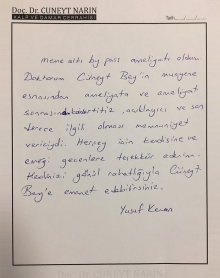 Doç. Dr. CÜNEYT NARİN
KALP VE DAMAR CERRAHİSİ
Tarih
meme altı by pass ameliyatı oldum
Doktorum Cüneyt Bey'in muayene
esnasından ameliyata ve ameliyat
sonrasında titiz, açıklayıcı ve son
derece ilgili olması memnuniyet
vericiydi. Herşey için kendisine ve
emeği geçenlere teşekkür ederim.
Kendinizi gönül rahatlığıyla Cüneyt
Bey'e emanet edebilirsiniz.
Yusuf Kenan
Doç. Dr. CÜNEYT NARİN